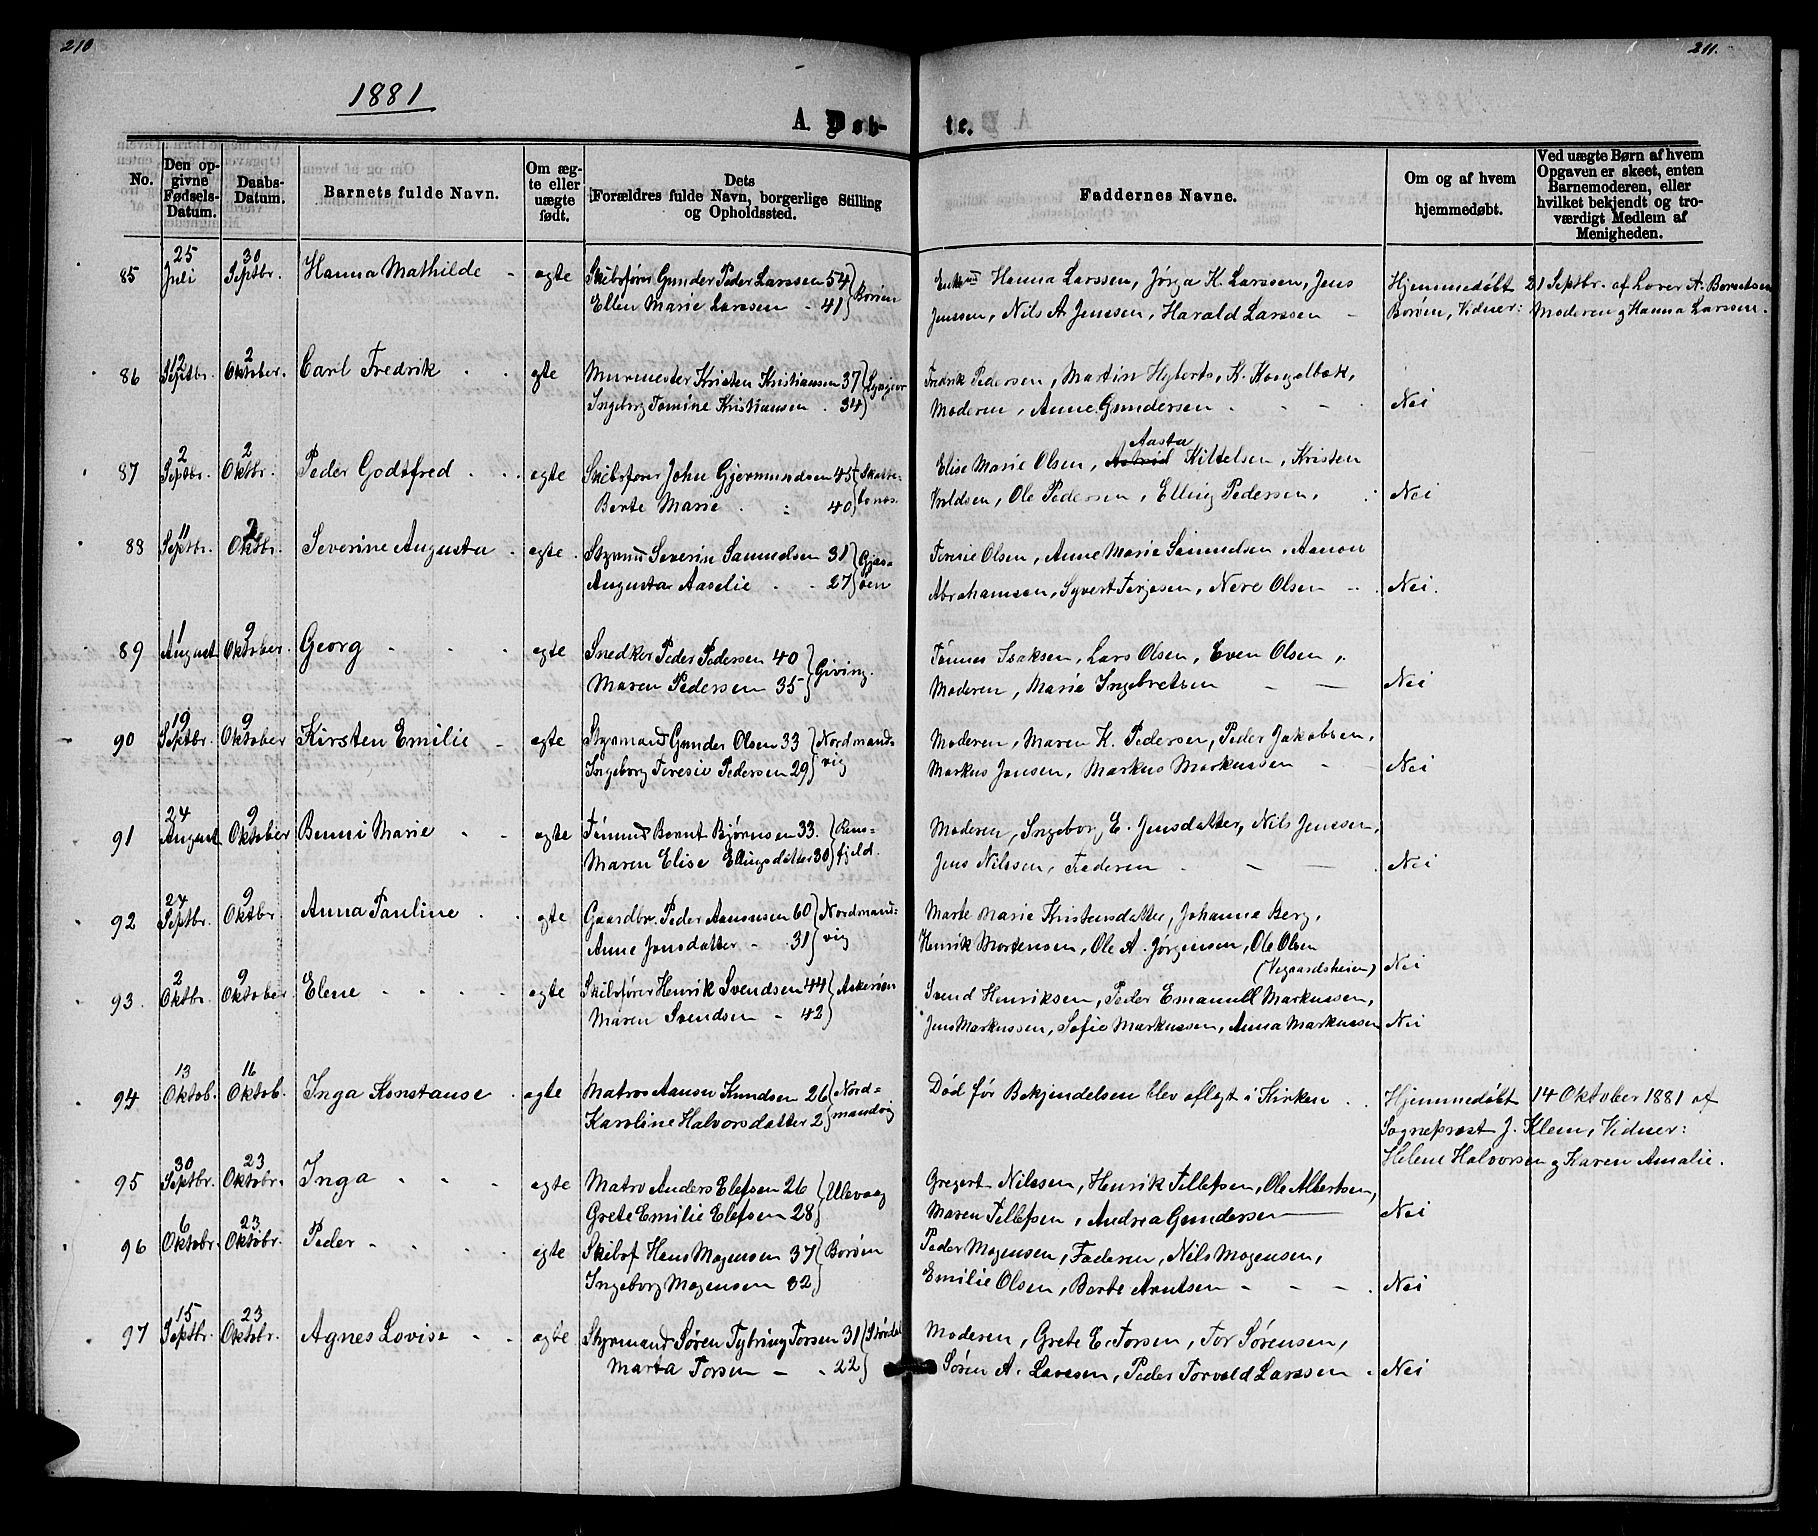 210
211.
1881
A. Døb-
te.
No.
Den op-
givne
Fødsels-
Datum.
Daabs-
Datum.
Barnets fulde Navn.
Om æg-
te eller
uægte
født.
Dets
Forældres fulde Navn, borgerlige Stilling
og Opholdssted.
Faddernes Navne.
Om og af hvem
hjemmedøbt.
Ved uægte Børn af hvem
Opgaven er skeet, enten
Barnemoderen, eller
hvilket bekjendt og tro-
værdigt Medlem af
Menigheden.
85 25 Juli 30 Septbr. Hanna Mathilde - ægte Skibsfører Gunder Peder Larssen 54 Borøen Hanna Larssen, Jørga K. Larssen, Jens Hjemmedøbt 21 Septbr. af Lærer A. Berntsen
Ellen Marie Larssen - 41 Jenssen, Nils A Jenssen, Harald Larssen - Borøen, Vidner: Moderen og Hanna Larssen.
86 12 Septbr. 2 Oktober. Carl Fredrik ægte Murmester Kristen Kristiansen 37 Lyngør Fredrik Pedersen, Martin Hyberts, K.
Ingeborg Tomine Kristiansen 34 Moderen, Anne Gundersen Nei
87 2 Septbr. 2 Oktbr. Peder Godtfred ægte Skibsfører John Gjermundsen 45 Elise Marie Olsen, Aasta Kittelsen, Kristen
Berte Marie 40 Ole Pedersen, Elling Pedersen, Nei
88 11 Septbr. 2 Oktbr. Severine Augusta ægte Styrmd Severin Samuelsen 31 Gjæs- Teresie Olsen, Anne Marie Samuelsen, Aanon
Augusta Aaselie 27 øen Abrahamsen, Syvert Terjesen, Nere Olsen Nei.
89 1 August 9 Oktober. Georg ægte Snedker Peder Pedersen 40 Giving. Tønnes Isaksen, Lars Olsen, Even Olsen,
Maren Pedersen 35 Moderen, Marie Ingebretsen Nei
90 19 Septbr. 9 Oktober Kirsten Emilie ægte Styrmand Gunder Olsen 33 Nordmand- Moderen, Maren K. Pedersen, Peder Jakobsen,
Ingeborg Teresie Pedersen 29 vig Markus Jensen, Markus Markussen Nei
91 24 August 9 Oktober Benni Marie ægte Tømmd Bernt Bjørnsen 33. Ræns- Moderen, Ingeborg E. Jensdatter, Nils Jenssen,
Maren Elise Ellingsdatter 30 fjeld. Jens Nilssen, Faderen Nei
92 24 Septbr. 9 Oktbr. Anna Pauline ægte Gaardbr. Peder Aanonsen 60 Nordmand- Marte Marie Kristensdatter, Johanna Berg,
Anne Jonsdatter 31 vig Henrik Mortensen, Ole A. Jørgensen, Ole Olsen
(Vegaardsheien) Nei
93. 2 Oktbr. 9 Oktober Elene ægte Skibsfører Henrik Svendsen 44 Askerøen Svend Henriksen, Peder Emanuell Markussen,
Maren Svendsen 42 Jens Markussen, Sofie Markussen, Anna Markussen Nei
94 13 Oktob. 16 Oktob. Inga Konstanse ægte Matros Aanon Knudsen 26 Nord- Død før Bekjendelsen blev aflagt i Kirken Hjemmedøbt 14 Oktober 1881 af
Karoline Halvorsdatter 2 mandvig Sogneprest J. Klem, Vidner:
Helene Halvorsen og Karen Amalie.
95 30 Septbr. 23 Oktobr. Inga ægte Matro Anders Elefsen 26 Ulevaag Gregert Nilssen, Henrik Tellefsen, Ole Albertsen,
Grete Emilie Elefsen 28 Maren Tellefsen, Andrea Gundersen Nei
96 6 Oktobr. 23 Oktobr. Peder ægte Skibsf Hans Mogensen 37 Borøen Peder Mogensen, Faderen, Nils Mogensen,
Ingeborg Mogensen 32 Emilie Olsen, Berte Arntsen Nei
97 15 Septbr. 23 Oktobr. Agnes Lovise ægte Styrmand Søren Tybring Torsen 31 Moderen, Grete E. Torsen, Tor Sørensen,
Marta Torsen 22 Søren A. Larssen, Peder Torvald Larssen Nei